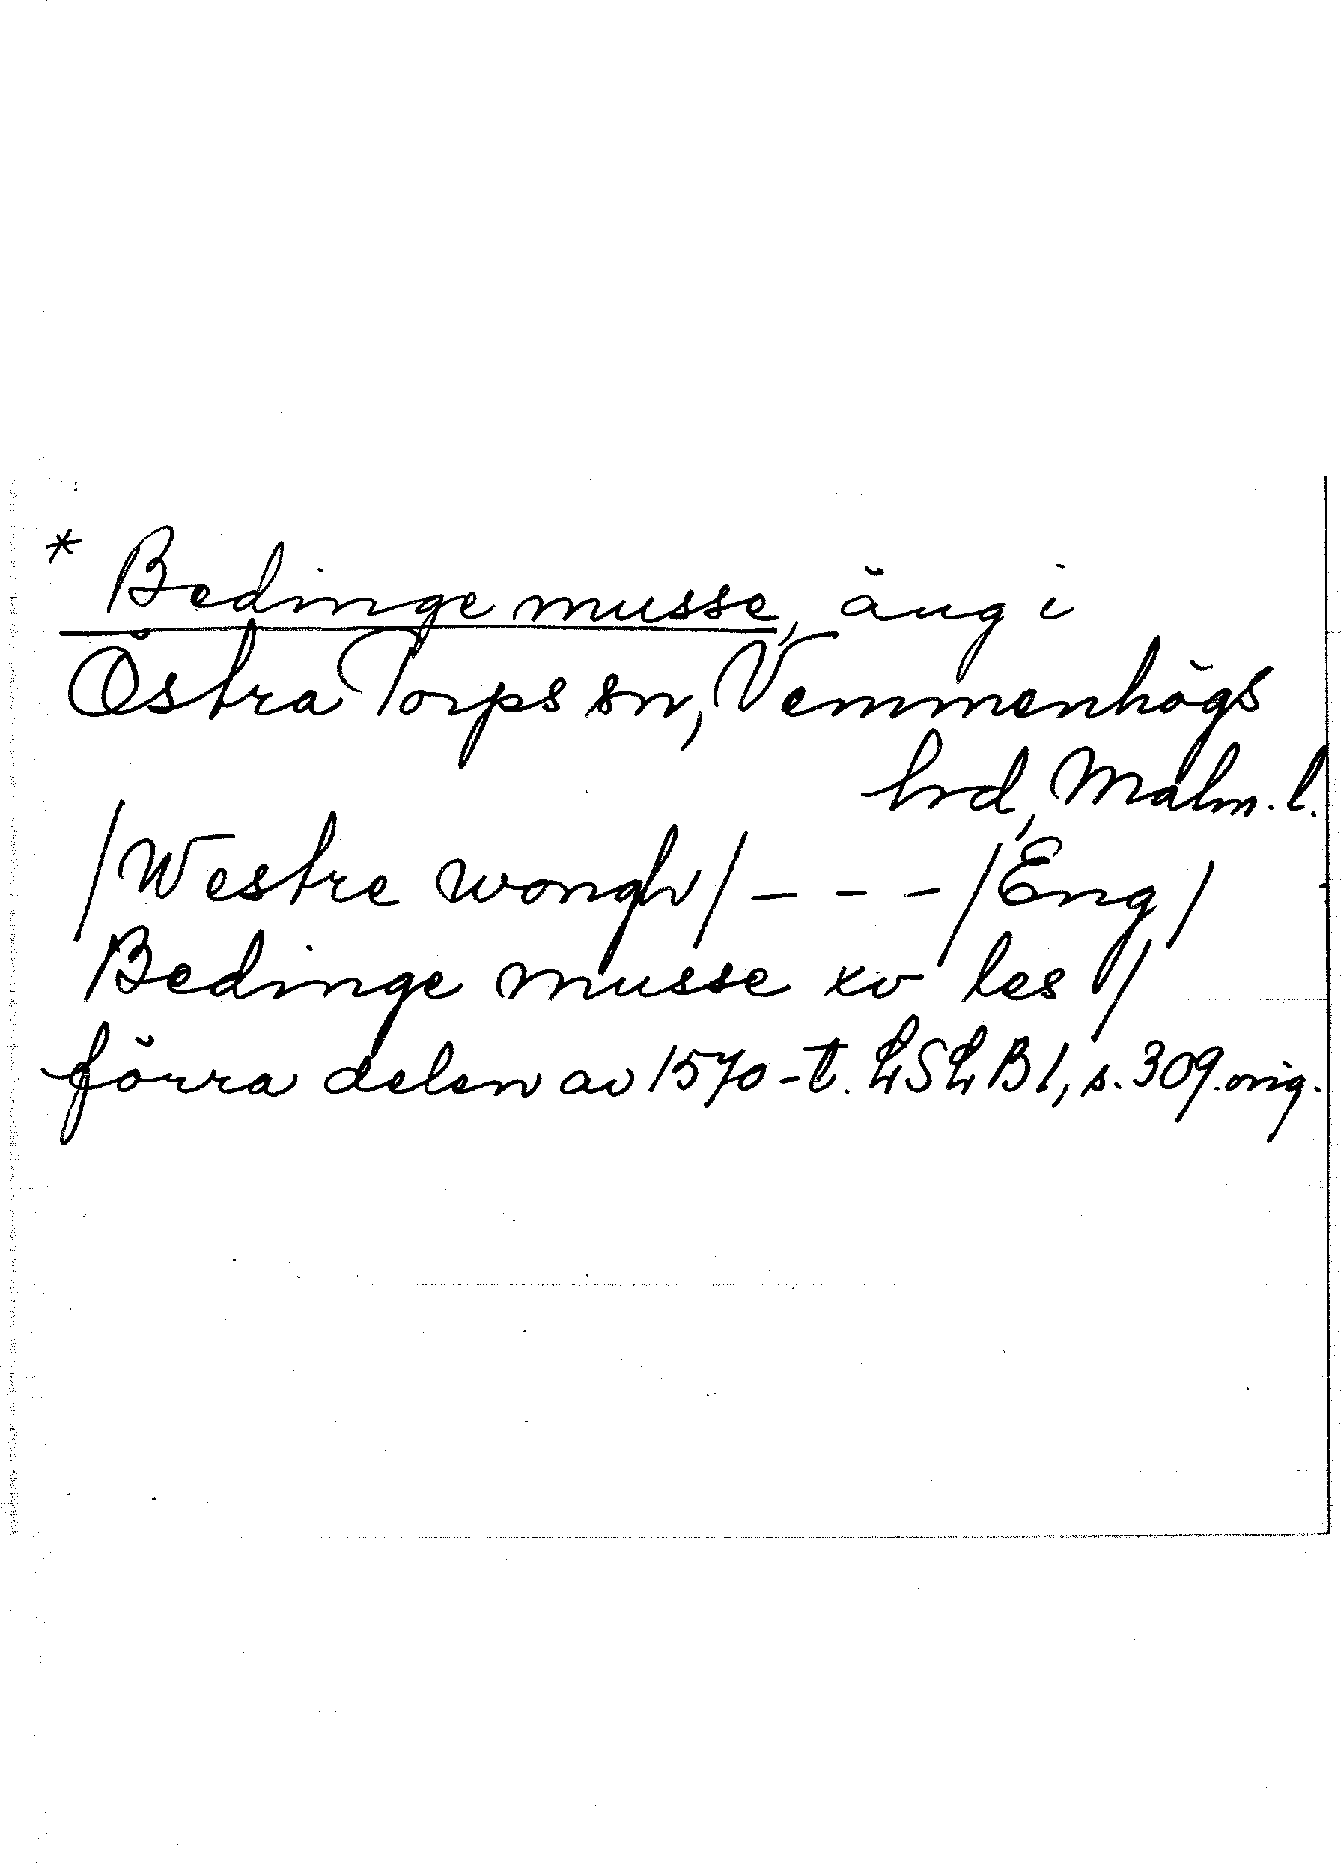 * Bedinge musse, äng i
Östra Torps sn, Vemmenhögs
hd, Malm. l.
/Westre wongh/ - - - /Eng/
Bedinge musse xv les /
förra delen av 1570-t. LSLB 1, s. 309. orig.